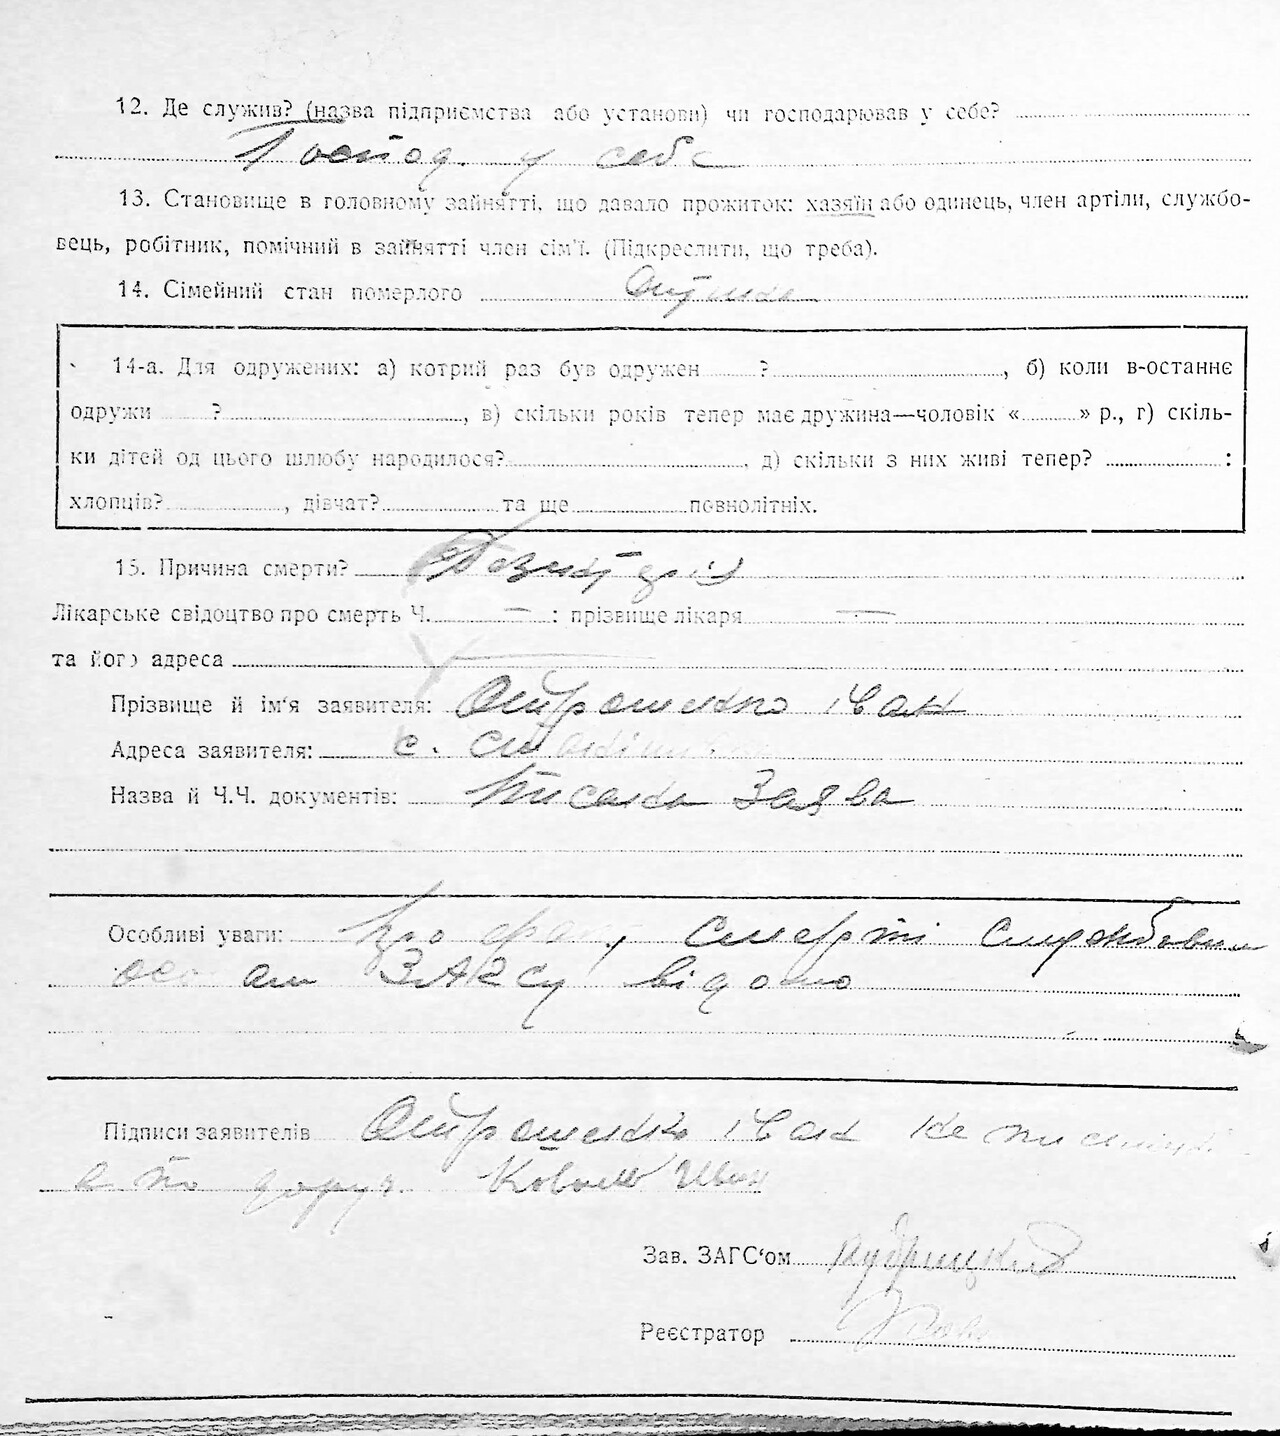 12. Де служив? (назва підприємства або установи) чи господарював у себе?
Господ. у себе
13. Становище в головному зайнятті, що давало прожиток: хазяїн або одинець, член артіли, службо-
вець, робітник, помічний в зайнятті член сім'ї. (Підкреслити, що треба).
14. Сімейний стан померлого
14-а. Для одружених: а) котрий раз був одружен ?, б) коли в-останнє
одружи ?, в) скільки років тепер має дружина—чоловік « » р., г) скіль-
ки дітей од цього шлюбу народилося?, д) скільки з них живі тепер? :
хлопців?, дівчат? та ще повнолітніх.
15. Причина смерти? Дезинтерія
Лікарське свідоцтво про смерть Ч. — : прізвище лікаря —
та його адреса —
Прізвище й ім'я заявителя: Іван
Адреса заявителя: с.
Назва й Ч.Ч. документів: Писана Заява
Особливі уваги: Про факт смерті службовим
особам ЗАГСу відомо
Підписи заявителів Іван не писмен.
а по доруч. Коваль Иван
Зав. ЗАГС'ом
Реєстратор